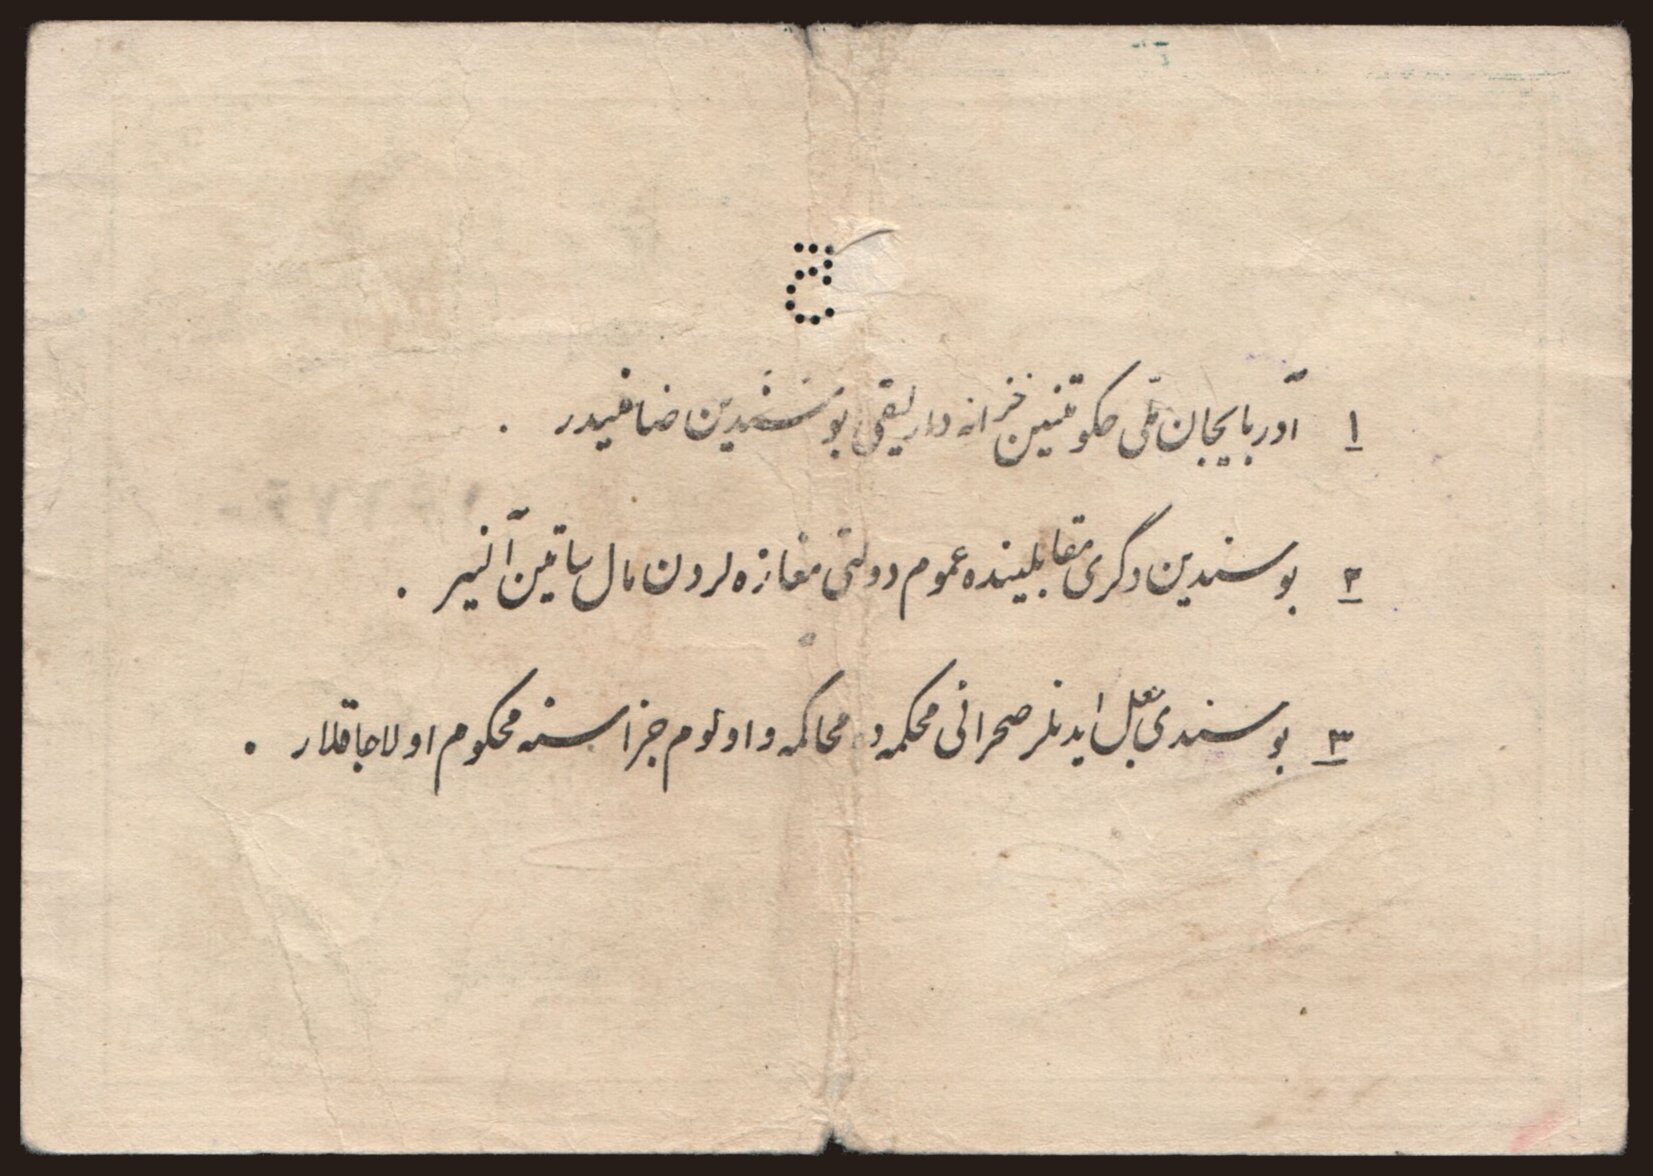 ۱ آذربایجان ملّی حکومتنین خزانه دارلیقی بو سندین ضامنیدر .
۲ بو سندین دگری مقابلینده عموم دولتی مغازه لردن مال ساتین آلنیر .
۳ بو سندی جعل ایدنلر صحرائی محکمه ده محاکمه و اولوم جزاسنه محکوم اولاجاقلار .